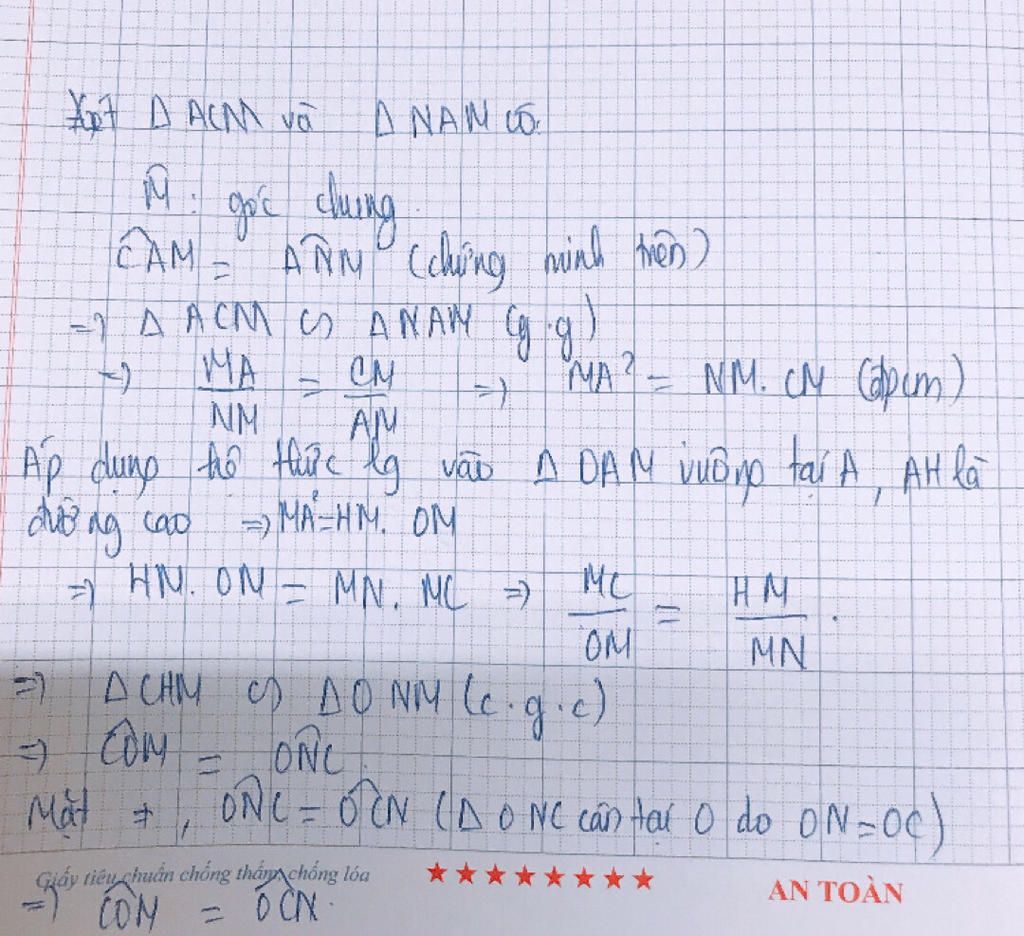 Xét Δ ACM và Δ NAM có:
M̂ : góc chung.
CÂM = AN̂M (chứng minh trên)
=> Δ ACM ∽ Δ NAM (g.g)
=> MA/NM = CM/AM => MA² = NM. CM (đpcm)
Áp dụng hệ thức lg vào Δ OAM vuông tại A, AH là
đường cao => MA²=HM. OM
=> HM. OM = MN. MC => MC/OM = HM/MN.
=> Δ CHM ∽ Δ ONM (c.g.c)
=> CÔM = ON̂C.
Mặt ≠, ON̂C = OĈN (Δ ONC cân tại O do ON=OC)
Giấy tiêu chuẩn chống thấm chống lóa ★★★★★★★★ AN TOÀN
=> CÔM = OĈN.